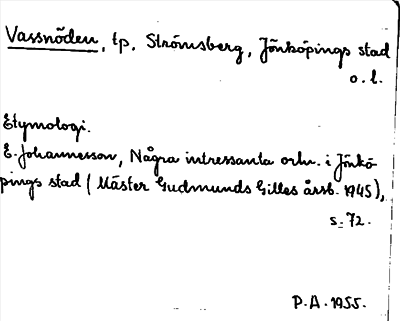 Vassnöden, tp, Strömsberg, Jönköpings stad
o. l.
Etymologi.
E. Johannesson, Några intressanta ortn. i Jönkö-
pings stad (Mäster Gudmunds Gilles årsb. 1945),
s. 72.
P. A. 1955.